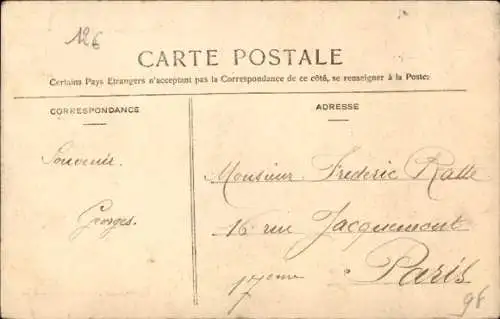 126
CARTE POSTALE
Certains Pays Etrangers n'acceptant pas la Correspondance de ce côté, se renseigner à la Poste.
CORRESPONDANCE
Souvenir.
Georges.
ADRESSE
Monsieur Frederic Ratte
16 rue Jacquemont
17eme Paris
98